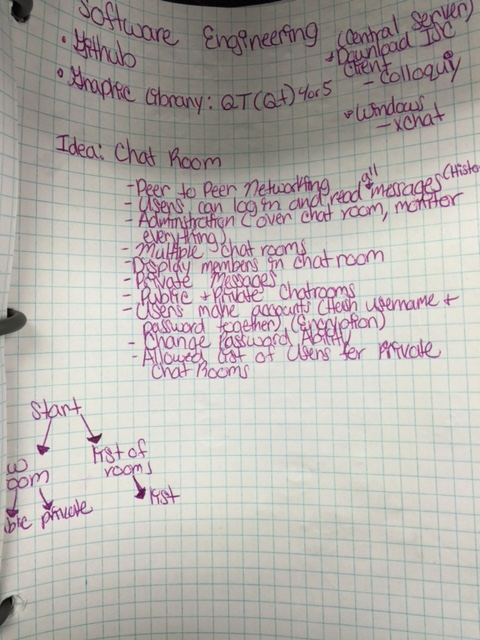 Software Engineering
(Central Server)
• Github
• Download IRC
Client
- Colloquy
• Graphic Library: QT (Qt) 4or5
• Windows
- xchat
Idea: Chat Room
- Peer to Peer Networking
- Users can log in and read all messages (Histo
- Administration (over chat room, monitor
everything)
- Multiple chat rooms
- Display members in chat room
- Private Messages
- Public + Private Chatrooms
- Users make accounts (Hash username +
Password together) (Encryption)
- Change Password Ability
- Allowed list of Users for Private
Chat Rooms
Start
w
oom
List of
rooms
blic private
List